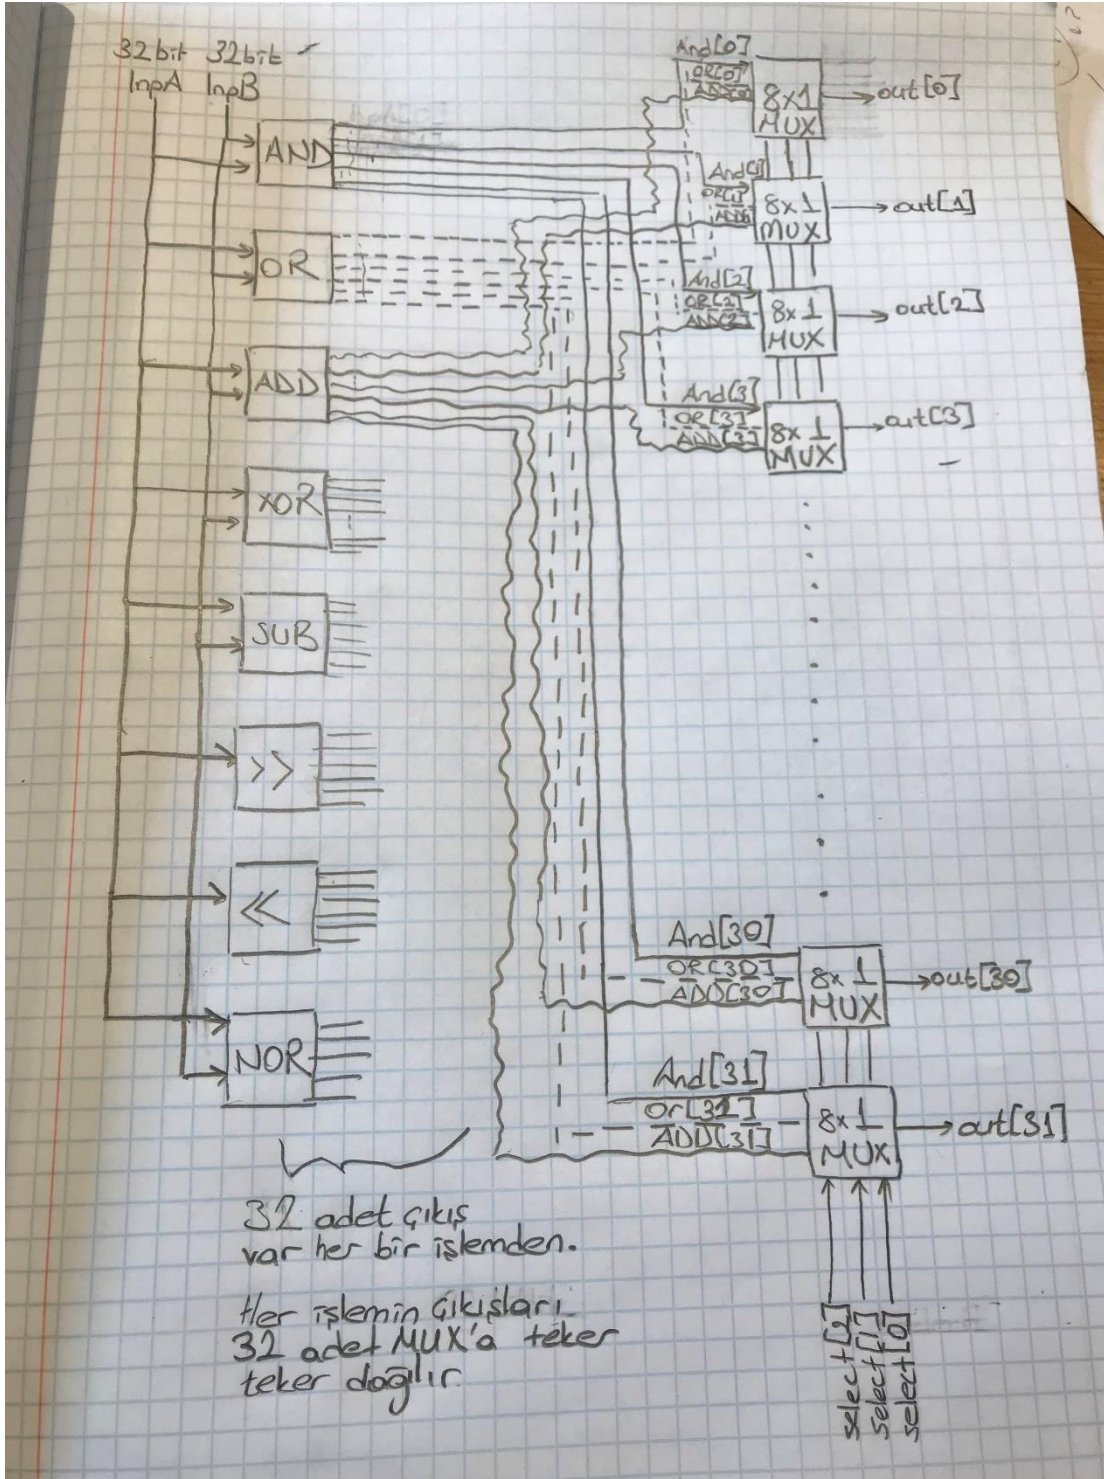 32bit 32bit
InpA InpB
AND
OR
ADD
XOR
SUB
>>
<<
NOR
And[0]
OR[0]
ADD[0]
8x1
MUX
out[0]
And[1]
OR[1]
8x1
MUX
out[1]
And[2]
OR[2]
ADD[2]
8x1
MUX
out[2]
And[3]
OR[3]
ADD[3]
8x1
MUX
out[3]
And[30]
OR[30]
ADD[30]
8x1
MUX
out[30]
And[31]
Or[31]
ADD[31]
8x1
MUX
out[31]
select[2]
select[1]
select[0]
32 adet çıkış
var her bir işlemden.
Her işlemin çıkışları
32 adet MUX'a teker
teker dağılır